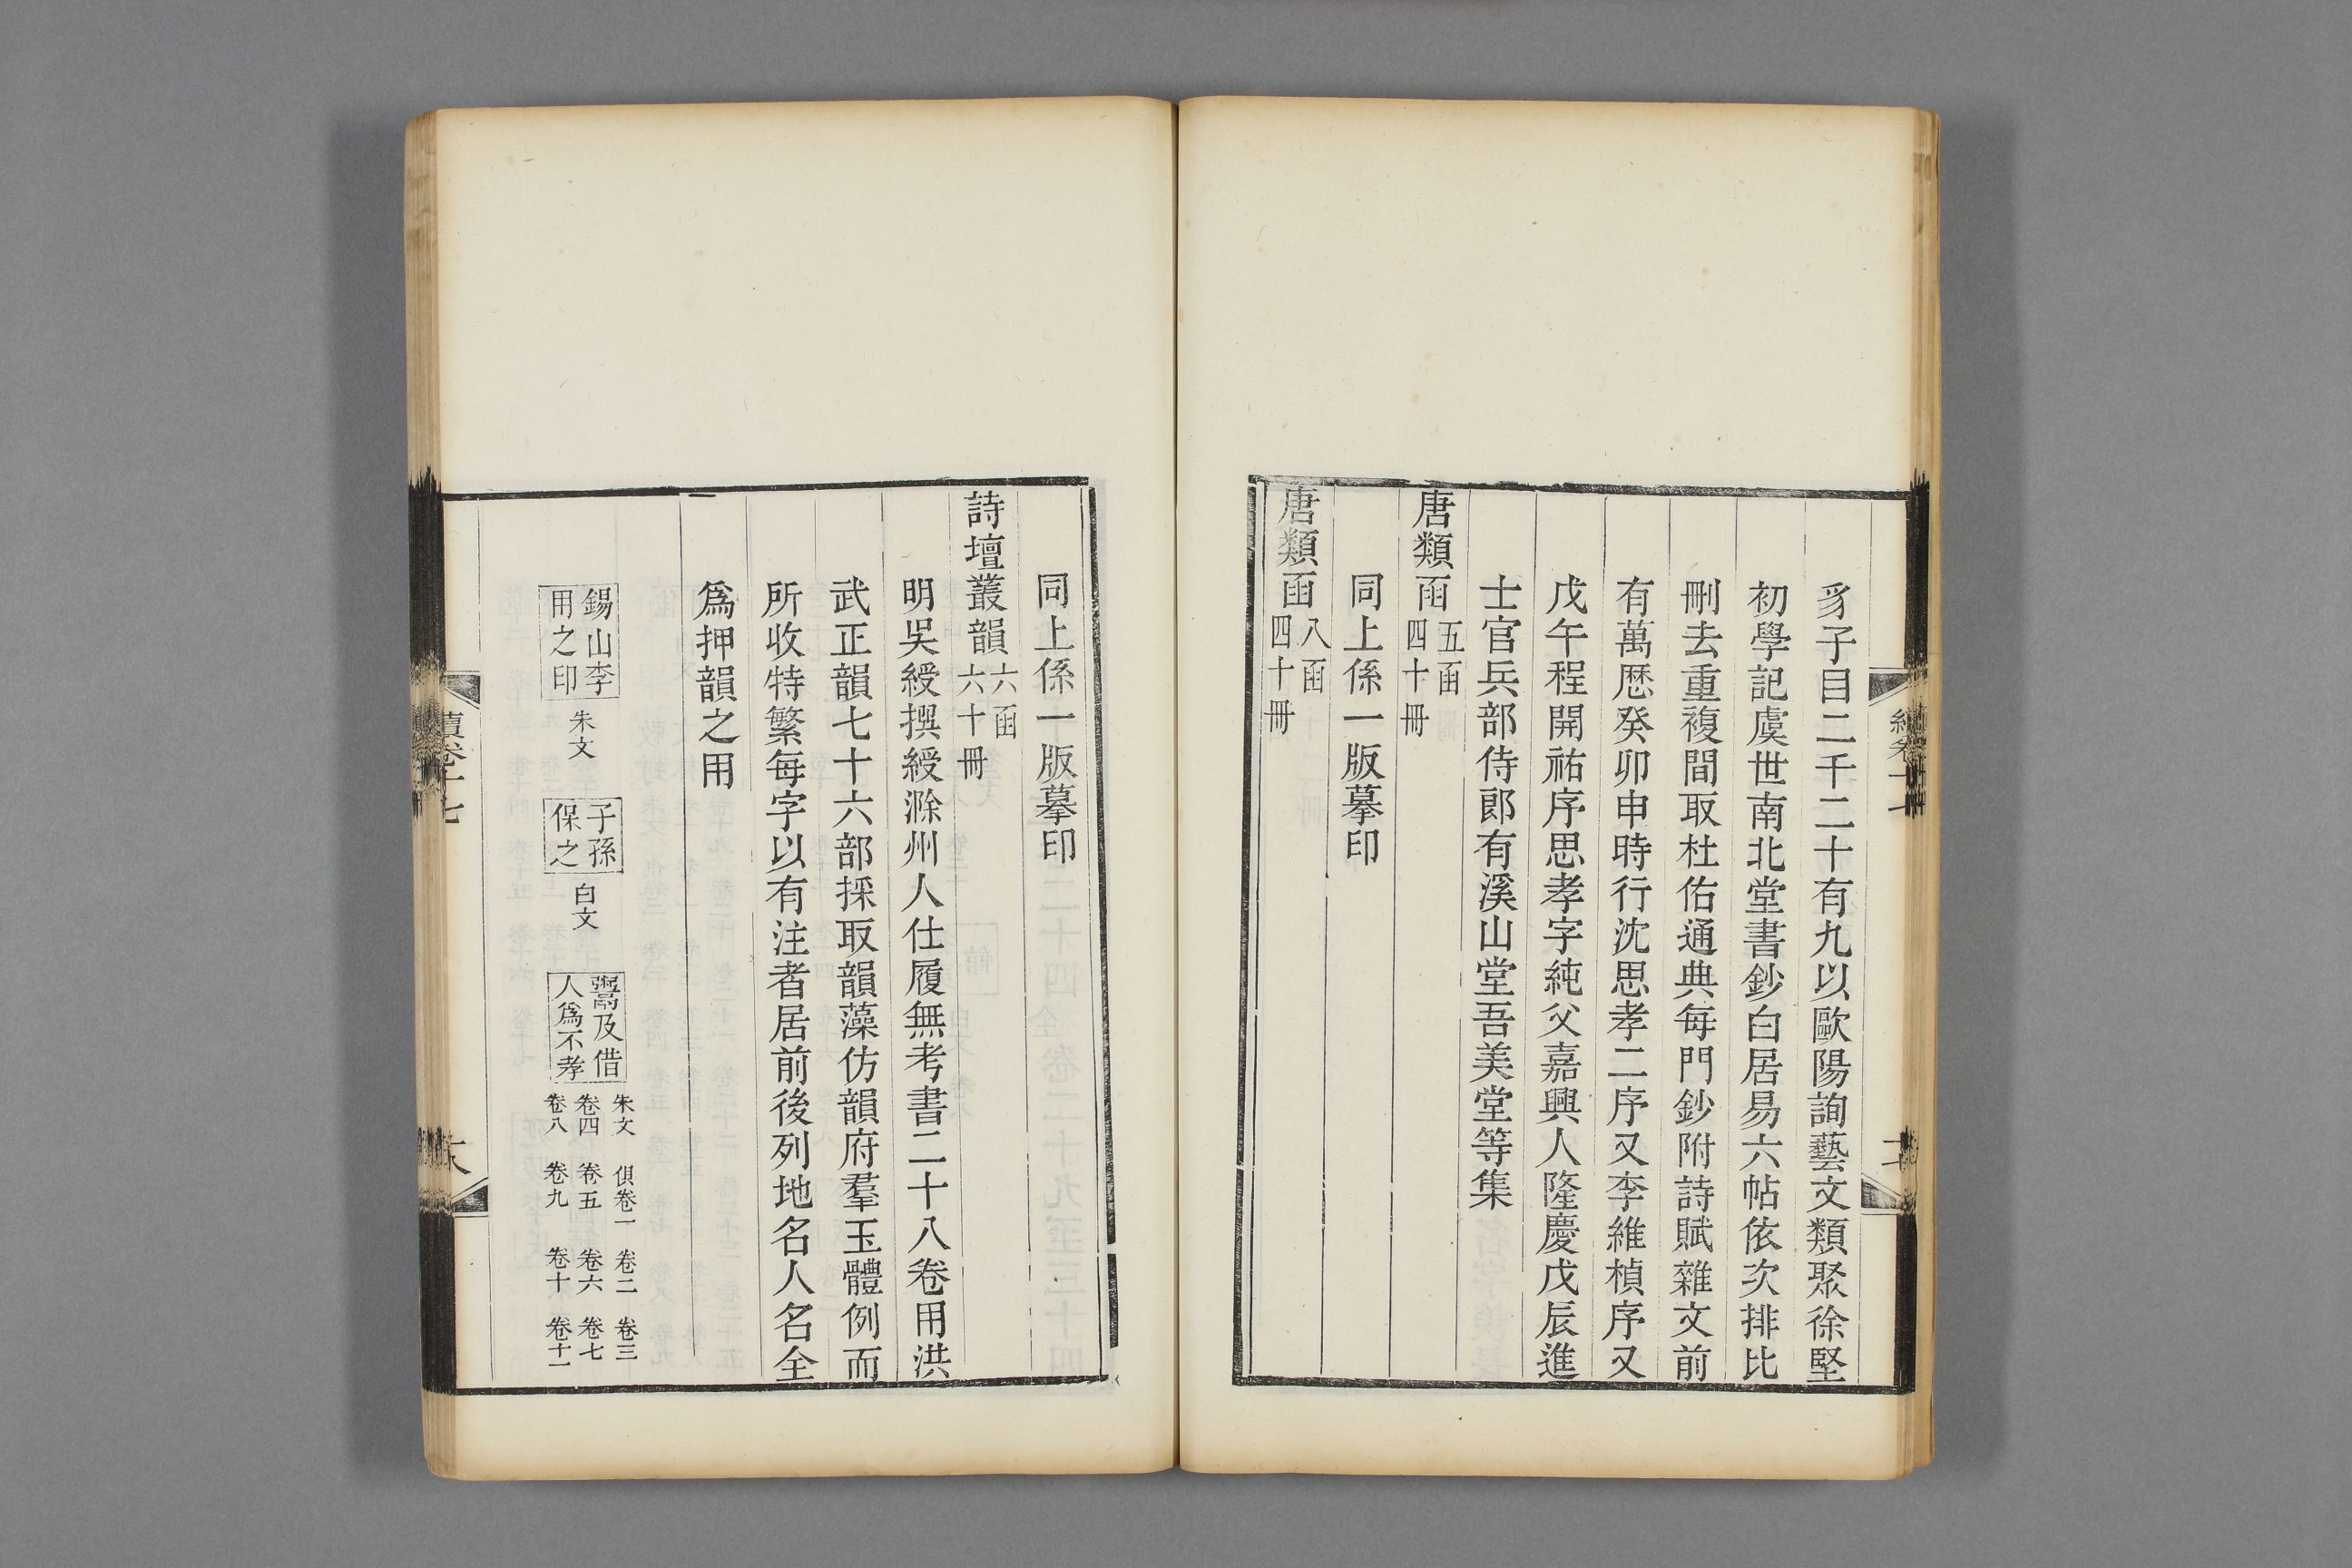 豸子目二千二十有九以歐陽詢藝文類聚徐堅
初學記虞世南北堂書鈔白居易六帖依次排比
刪去重複間取杜佑通典每門鈔附詩賦雜文前
有萬歷癸卯申時行沈思孝二序又李維楨序又
戊午程開祐序思孝字純父嘉興人隆慶戊辰進
士官兵部侍郎有溪山堂吾美堂等集
唐類函五函四十冊
同上係一版摹印
唐類函八函四十冊
同上係一版摹印
詩壇叢韻六函六十冊
明吳綬撰綬滁州人仕履無考書二十八卷用洪
武正韻七十六部採取韻藻仿韻府羣玉體例而
所收特繁每字以有注者居前後列地名人名全
爲押韻之用
錫山李
用之印
朱文
子孫
保之
白文
鬻及借
人爲不孝
朱文 俱卷一 卷二 卷三
卷四 卷五 卷六 卷七
卷八 卷九 卷十 卷十一
續卷十七